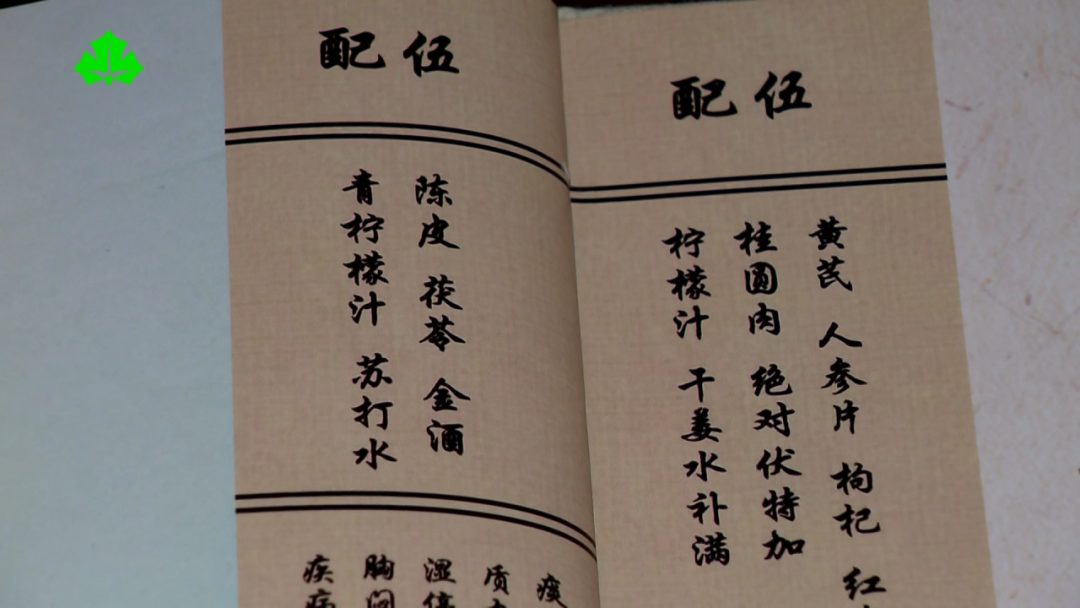 配伍
黄芪 人参片 枸杞 红
桂圆肉 绝对伏特加
柠檬汁 干姜水补满
配伍
陈皮 茯苓 金酒
青柠檬汁 苏打水
痰
质
湿停
胸闷
疾病